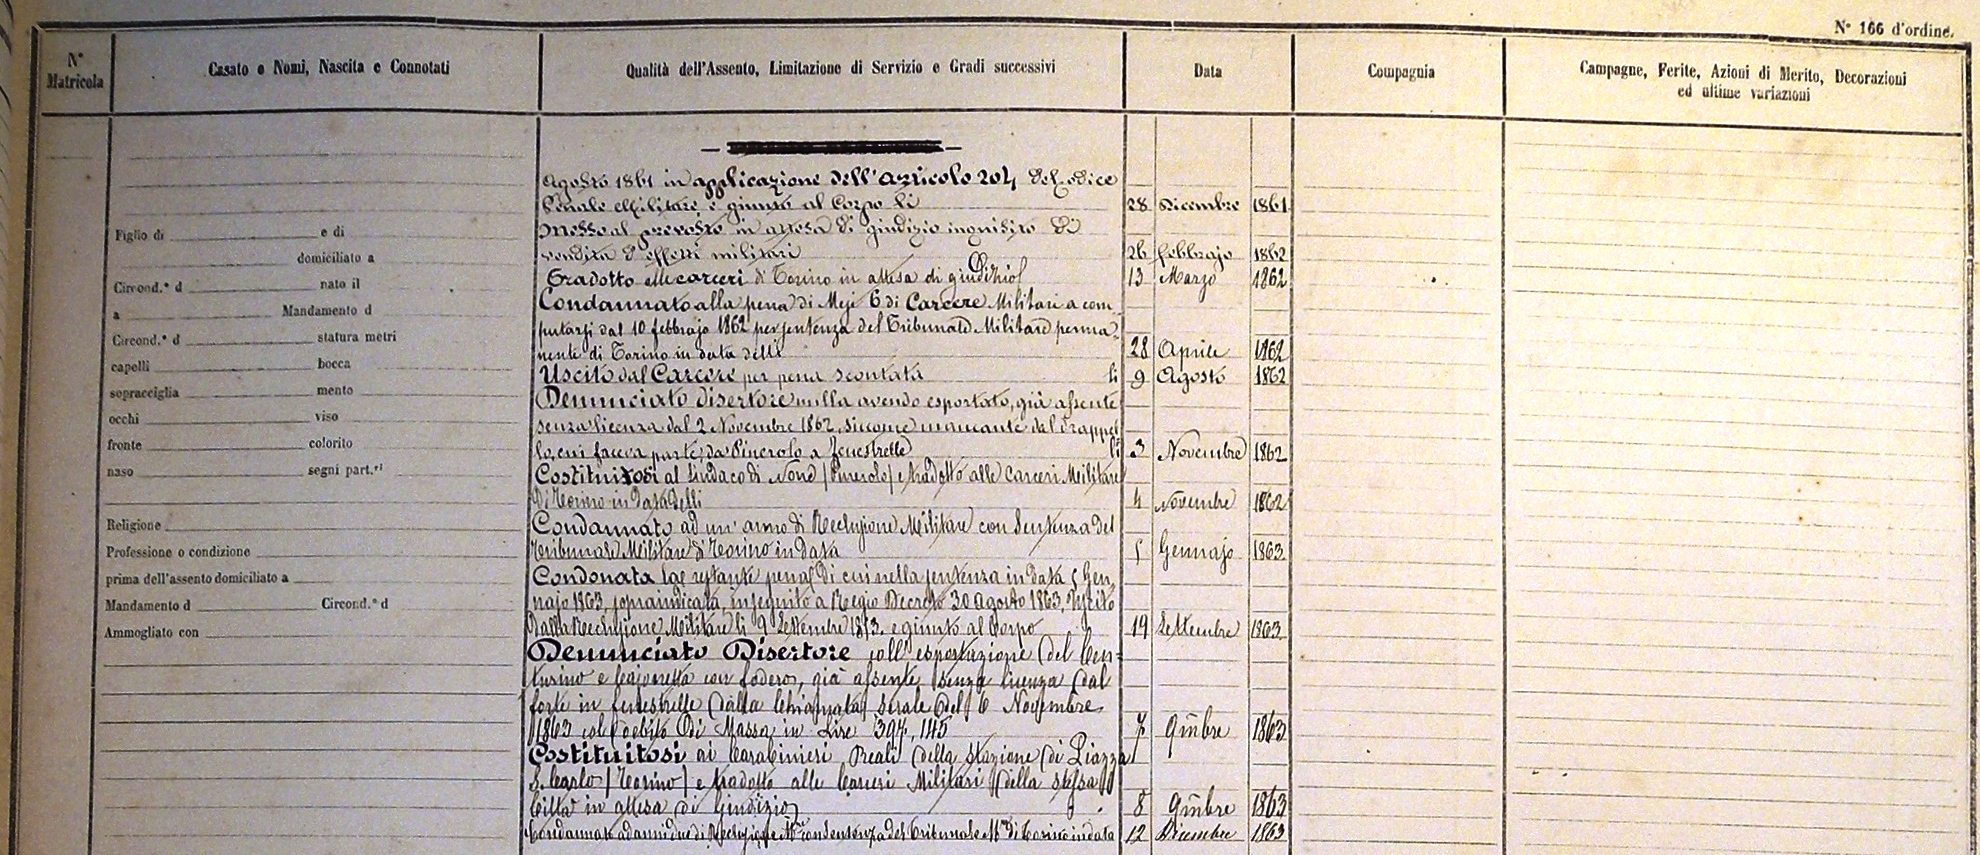 N° 166 d'ordine.
N° Matricola
Casato e Nomi, Nascita e Connotati
Qualità dell'Assento, Limitazione di Servizio e Gradi successivi
Data
Compagnia
Campagne, Ferite, Azioni di Merito, Decorazioni
ed ultime variazioni
Agosto 1861 in applicazione dell'articolo 204 del Codice
Penale Militare è giunto al Corpo li 28 Dicembre 1861
Messo al prevosto in attesa di giudizio inquisito di
vendita d'effetti militari 26 febbrajo 1862
Tradotto alle carceri di Torino in attesa di giudizio 13 Marzo 1862
Condannato alla pena di Mesi 6 di Carcere Militare a com
putarsi dal 10 febbrajo 1862 per sentenza del Tribunale Militare perma=
nente di Torino in data delli 28 Aprile 1862
Uscito dal Carcere per pena scontata li 9 Agosto 1862
Denunciato disertore nulla avendo esportato, già assente
senza licenza dal 2 Novembre 1862 siccome mancante del Drappel
lo, cui faceva parte, da Pinerolo a Fenestrelle li 3 Novembre 1862
Costituitosi al Sindaco di None (Pinerolo) e tradotto alle Carceri Militari
di Torino in data delli 4 Novembre 1862
Condannato ad un'anno di Reclusione Militare con Sentenza del
Tribunale Militare di Torino in data 5 Gennajo 1863
Condonata la restante pena di cui nella sentenza in data 5 Gen
najo 1863, sopraindicata, in seguito a Regio Decreto 30 agosto 1863, Uscito
dalla Reclusione Militare li 9 Settembre 1863 e giunto al Corpo 19 Settembre 1863
Denunciato Disertore coll'esportazione del Cen=
turino e bajonetta con fodero, già assente senza licenza dal
forte in fenestrelle dalla chiamata serale del 6 Novembre
1863 col debito di Massa in Lire 397, 145 7 9mbre 1863
Costituitosi ai Carabinieri Reali della stazione di Piazza
S. Carlo (Torino) e tradotto alle Carceri Militari della stessa
Città in attesa di Giudizio 8 9mbre 1863
Condannato ad anni due di Reclusione Mre con sentenza del Tribunale Me di Torino in data 12 Dicembre 1863
Figlio di e di
domiciliato a
Circond.° d nato il
a Mandamento d
Circond.° d statura metri
capelli bocca
sopracciglia mento
occhi viso
fronte colorito
naso segni part.ri
Religione
Professione o condizione
prima dell'assento domiciliato a
Mandamento d Circond.° d
Ammogliato con